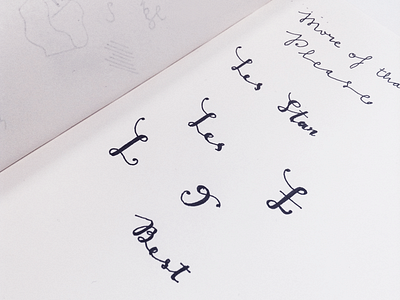 More of tha
Please
Les
Star
Les
L
£
Best